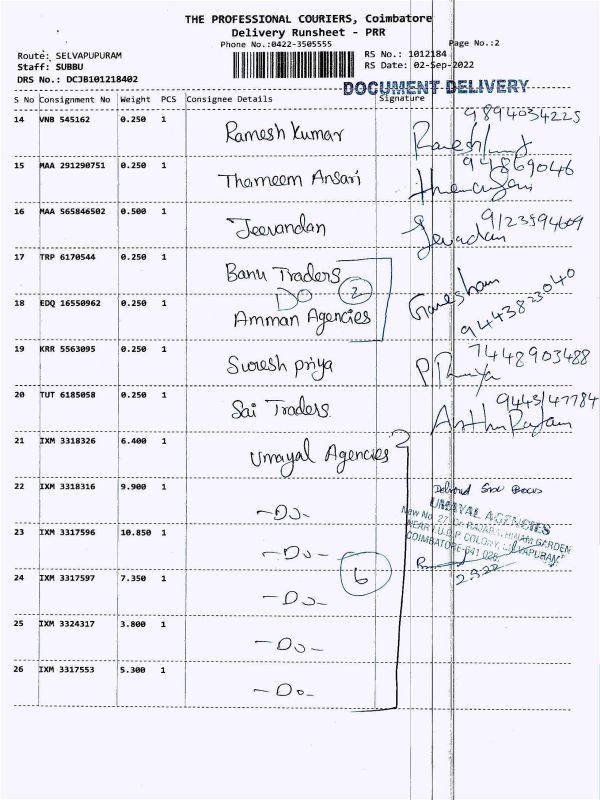 THE PROFESSIONAL COURIERS, Coimbatore
Delivery Runsheet - PRR
Phone No.:0422-3505555 Page No.:2
Route: SELVAPUPURAM RS No.: 1012184
Staff: SUBBU RS Date: 02-Sep-2022
DRS No.: DCJB101218402
DOCUMENT DELIVERY
S No Consignment No Weight PCS Consignee Details Signature
14 VNB 545162 0.250 1 Ramesh Kumar 9894034225
15 MAA 291290751 0.250 1 Thameem Ansari 948869046
16 MAA 565846502 0.500 1 Jeevandan Jevadan 9123594609
17 TRP 6170544 0.250 1 Banu Traders
DO 2 Ganesham
18 EDQ 16550962 0.250 1 Amman Agencies 9443823040
19 KRR 5563095 0.250 1 Suresh priya 7448903488
20 TUT 6185058 0.250 1 Sai Traders 9443147784
21 IXM 3318326 6.400 1 Umayal Agencies
22 IXM 3318316 9.900 1 -Do-
UMAYAL AGENCIES
23 IXM 3317596 10.850 1 -Do-
COIMBATORE-641 026.
24 IXM 3317597 7.350 1 -Do- 6
25 IXM 3324317 3.800 1 -Do-
26 IXM 3317553 5.300 1 -Do-